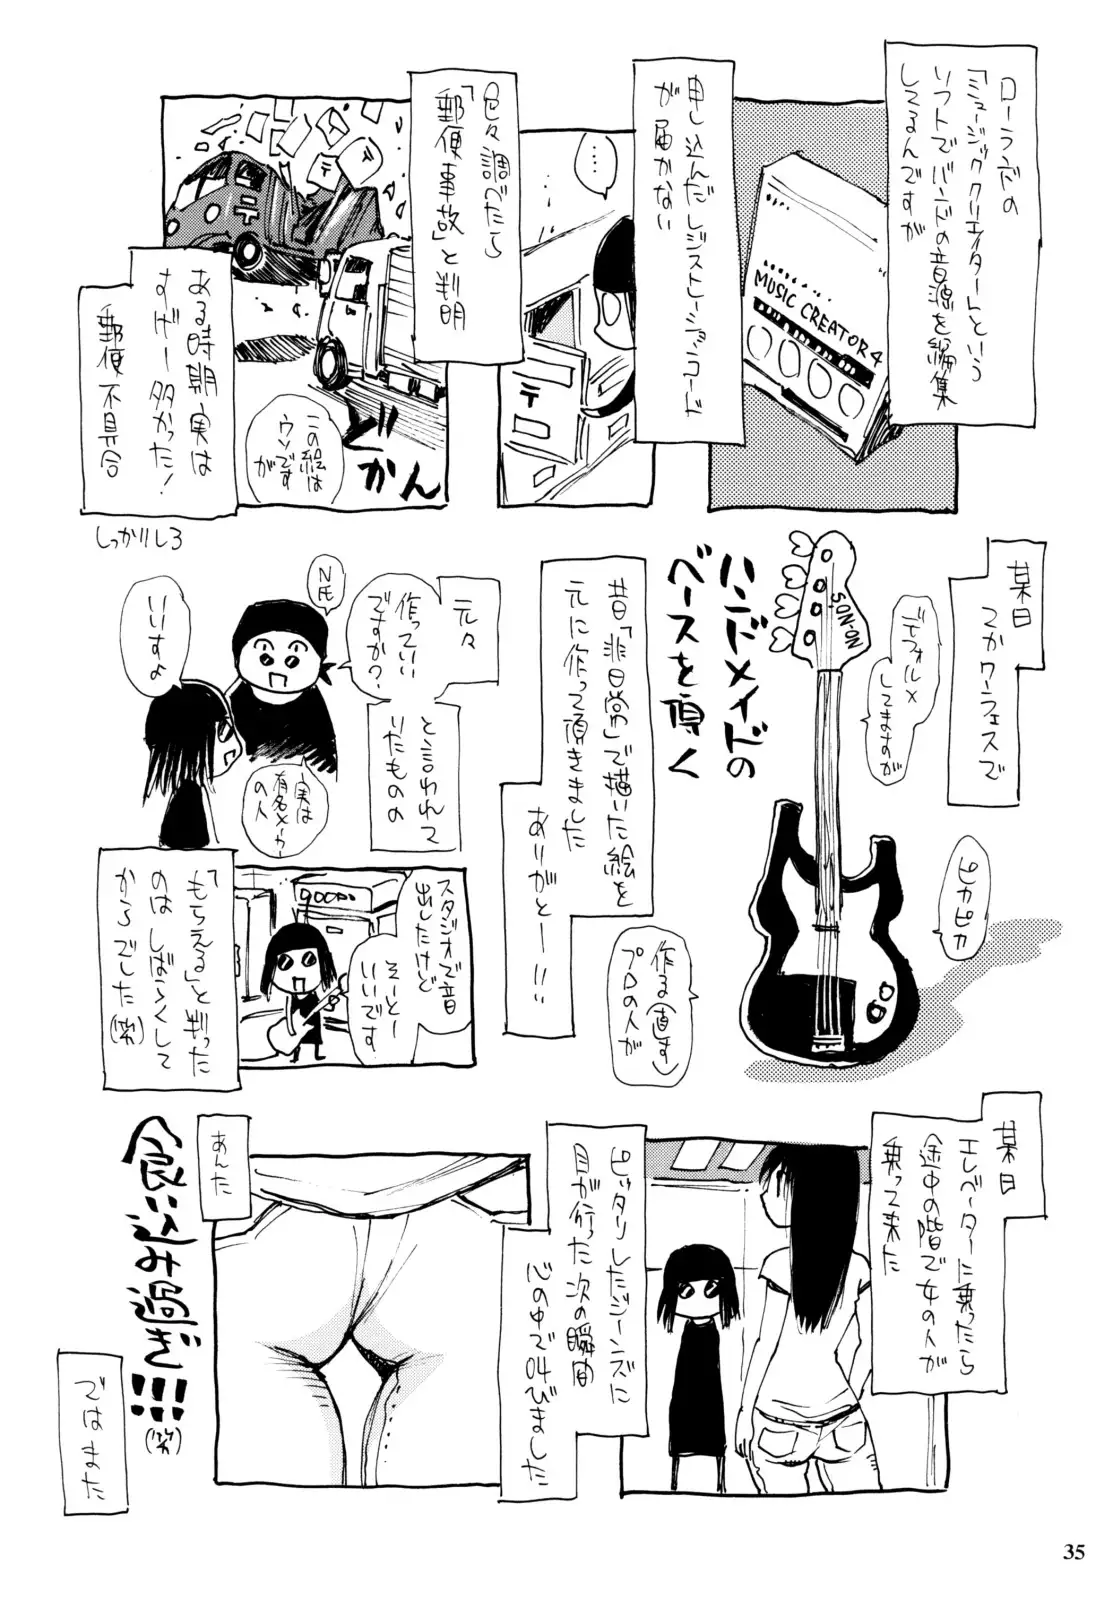 ローランドの
「ミュージッククリエイター4」という
ソフトでバンドの音源を編集
してるんですが
MUSIC CREATOR 4
申し込んだレジストレーションコード
が届かない
……
色々調べたら
「郵便事故」と判明
この絵は
ウソです
が
どかん
ある時期実は
すげー多かった!
郵便不具合
しっかりしろ
某日
SON-ON
デフォルメ
してますのが
ピカピカ
ハンドメイドの
ベースを頂く
昔「非日常」で描いた絵を
元に作って頂きました
ありがとー!!!
作る(直す)
プロの人が
元々
N氏
作っていい
ですか?
と言われて
いたものの
いいすよ
実は
有名メーカー
の人
スタジオで音
出したけど
そーとー
いいです
「もらえる」と判った
のはしばらくして
からでした(笑)
某日
エレベーターに乗ったら
途中の階で女の人が
乗って来た
ピッタリしたジーンズに
目が行った次の瞬間
心の中で叫びました
あんた
食い込み過ぎ!!!
(笑)
ではまた
35